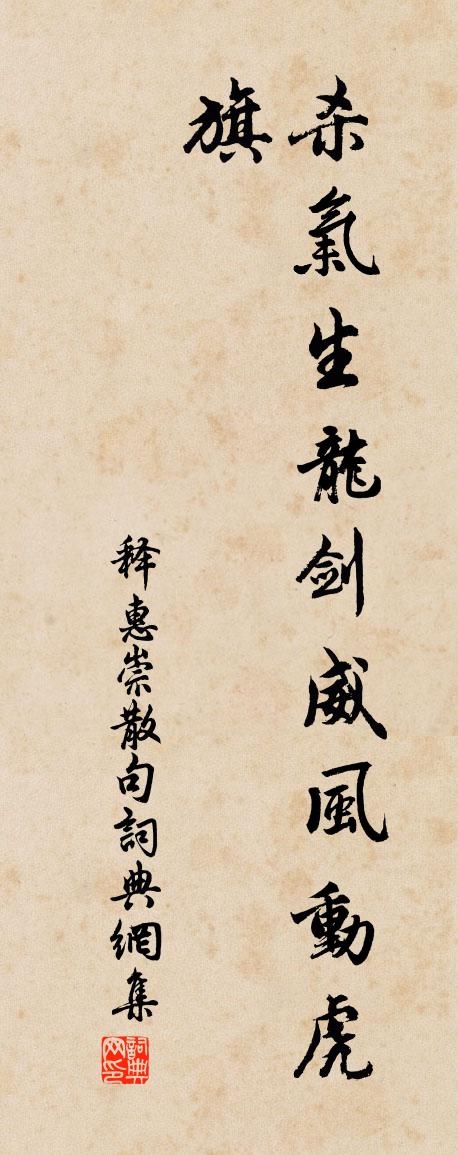 杀氣生龍劍威風動虎
旗
释惠崇散句詞典網集
詞典网印